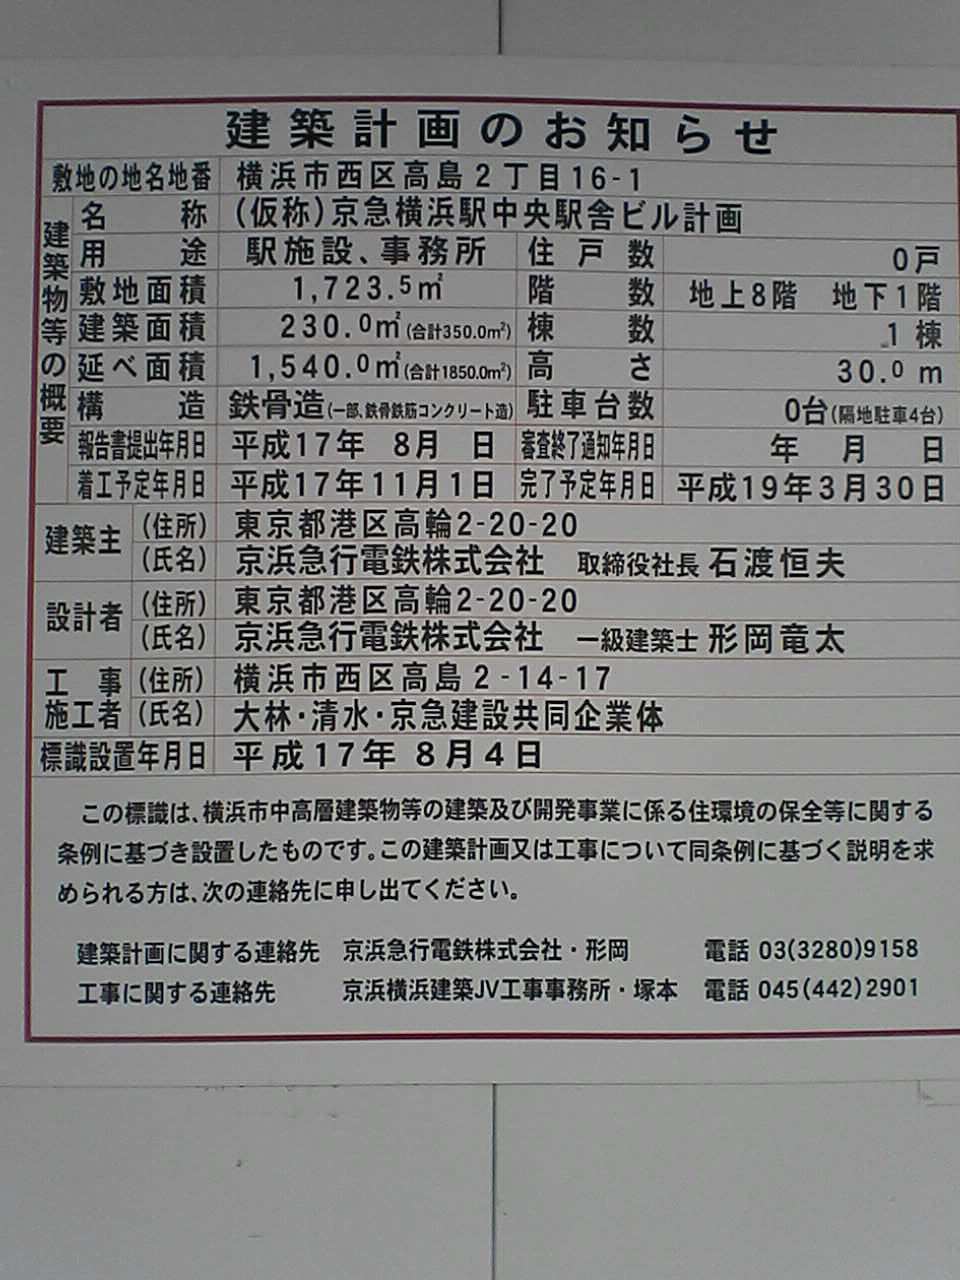 建築計画のお知らせ
敷地の地名地番 横浜市西区高島2丁目16-1
建築物等の概要
名称 (仮称)京急横浜駅中央駅舎ビル計画
用途 駅施設、事務所 住戸数 0戸
敷地面積 1,723.5㎡ 階数 地上8階 地下1階
建築面積 230.0㎡(合計350.0㎡) 棟数 1棟
延べ面積 1,540.0㎡(合計1850.0㎡) 高さ 30.0m
構造 鉄骨造(一部、鉄骨鉄筋コンクリート造) 駐車台数 0台(隔地駐車4台)
報告書提出年月日 平成17年 8月 日 審査終了通知年月日 年 月 日
着工予定年月日 平成17年11月1日 完了予定年月日 平成19年3月30日
建築主 (住所) 東京都港区高輪2-20-20
(氏名) 京浜急行電鉄株式会社 取締役社長 石渡恒夫
設計者 (住所) 東京都港区高輪2-20-20
(氏名) 京浜急行電鉄株式会社 一級建築士 形岡竜太
工事施工者 (住所) 横浜市西区高島2-14-17
(氏名) 大林・清水・京急建設共同企業体
標識設置年月日 平成17年 8月4日
この標識は、横浜市中高層建築物等の建築及び開発事業に係る住環境の保全等に関する
条例に基づき設置したものです。この建築計画又は工事について同条例に基づく説明を求
められる方は、次の連絡先に申し出てください。
建築計画に関する連絡先 京浜急行電鉄株式会社・形岡 電話 03(3280)9158
工事に関する連絡先 京浜横浜建築JV工事事務所・塚本 電話 045(442)2901